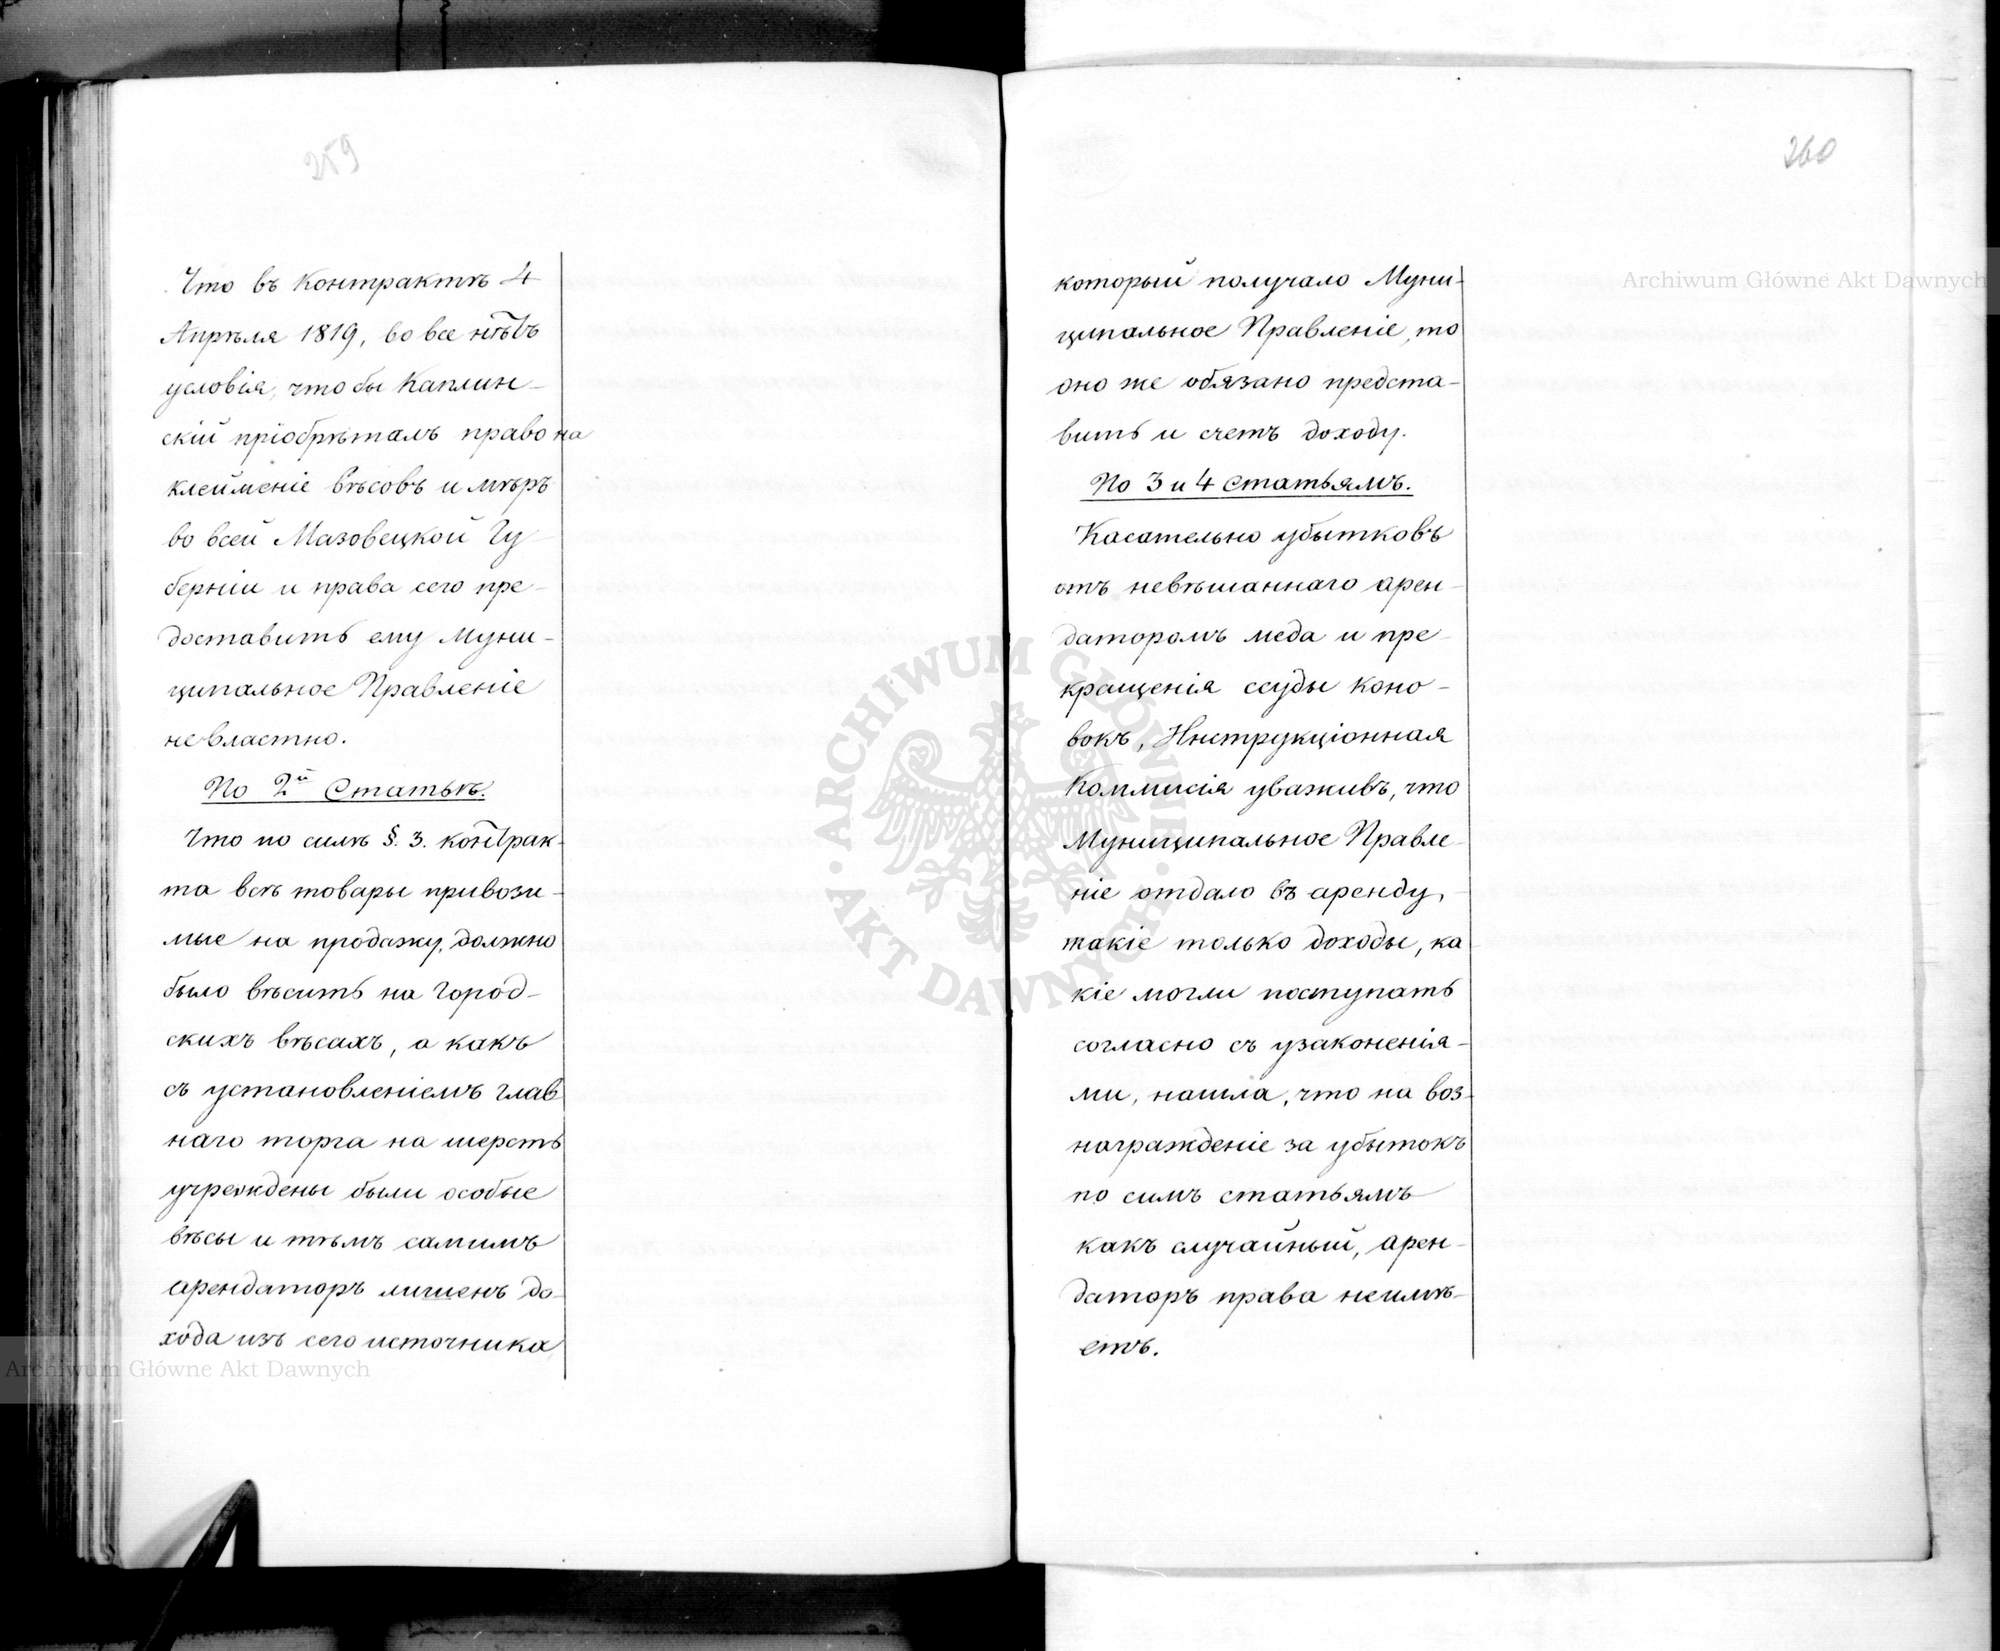 259
Что въ Контрактѣ 4
Апрѣля 1819, во все нѣтъ
условія, что бы Каплин-
скій пріобрѣталъ право на
клейменіе вѣсовъ и мѣръ
во всей Мазовецкой Гу
берніи и права сего пре-
доставить ему Муни-
ципальное Правленіе
невластно.
По 2й Статьѣ.
Что по силѣ §. 3. контрак-
та всѣ товары привози-
мые на продажу, должно
было вѣсить на город-
скихъ вѣсахъ, а какъ
съ установленіемъ глав
наго торга на шерсть
учреждены были особые
вѣсы и тѣмъ самимъ
арендаторъ лишенъ до-
хода изъ сего источника
260
который получало Муни-
ципальное Правленіе, то
оно же обязано предста-
вить и счетъ доходу.
По 3 и 4 статьямъ.
Касательно убытковъ
отъ невѣшаннаго арен-
даторомъ меда и пре-
кращенія ссуды коно-
вокъ, Инструкціонная
Коммисія уваживъ, что
Муниципальное Правле-
ніе отдало въ аренду,
такіе только доходы, ка
кіе могли поступать
согласно съ узаконенія-
ми, нашла, что на воз-
награжденіе за убытокъ
по симъ статьямъ
какъ случайный, арен-
даторъ права неимѣ-
етъ.
Archiwum Główne Akt Dawnych
ARCHIWUM GŁÓWNE AKT DAWNYCH
Archiwum Główne Akt Dawnych